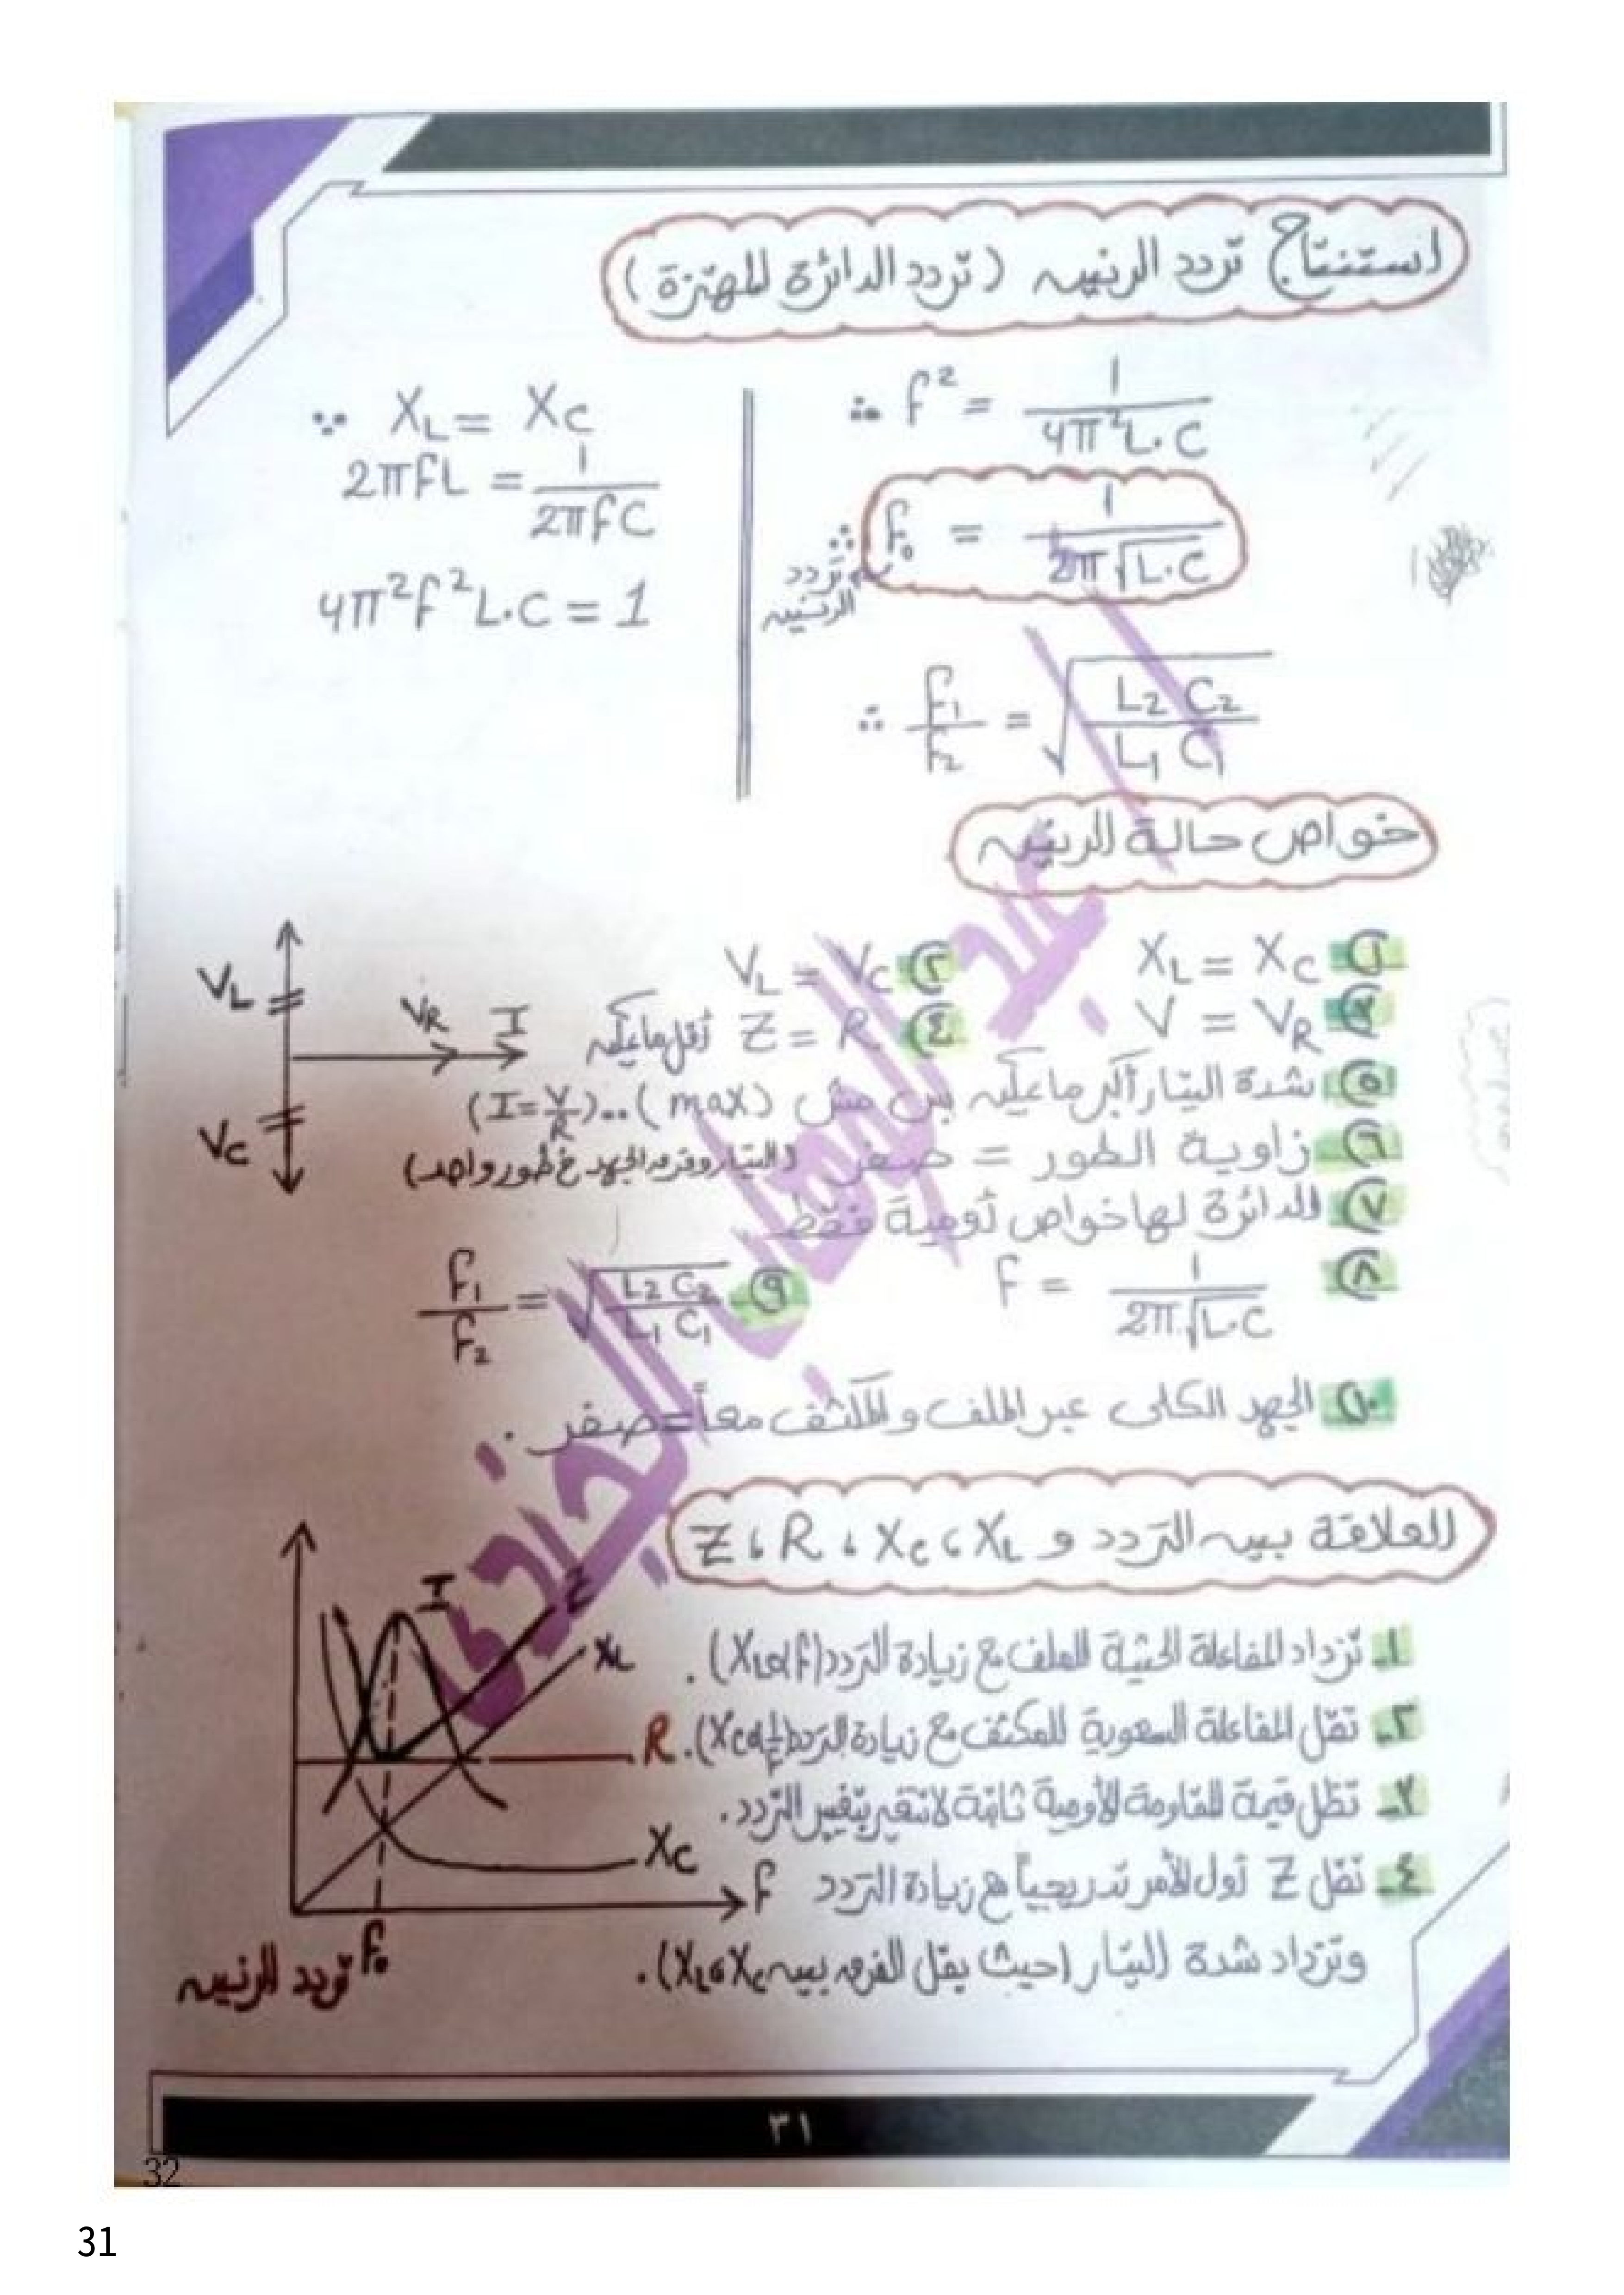 استنتاج تردد الرنين (تردد الدائرة المهتزة)
∵ XL = XC
2πfL = 1/2πfC
4π²f²L.C = 1
∴ f² = 1/4π²L.C
∴ f₀ = 1/2π√L.C
تردد
الرنين
∴ f₁/f₂ = √L₂ C₂/L₁ C₁
خواص حالة الرنين
① XL = XC
② VL = VC
③ V = VR
④ Z = R أقل ما يمكن
⑤ شدة التيار أكبر ما يمكن بس مش (max) .. (I = V/R)
⑥ زاوية الطور = صفر (التيار وفرق الجهد في طور واحد)
⑦ الدائرة لها خواص أومية فقط
⑧ f = 1/2π√L.C
⑨ f₁/f₂ = √L₂ C₂/L₁ C₁
⑩ الجهد الكلى عبر الملف والمكثف معاً = صفر .
VL
VR I
VC
العلاقة بين التردد و XL ، XC ، R ، Z
١ـ تزداد المفاعلة الحثية للملف مع زيادة التردد (XL α f) .
٢ـ تقل المفاعلة السعوية للمكثف مع زيادة التردد (XC α 1/f) .
٣ـ تظل قيمة المقاومة الأومية ثابتة لا تتغير بتغير التردد .
٤ـ تقل Z أول الأمر تدريجياً مع زيادة التردد
وتزداد شدة التيار (حيث يقل الفرق بين XL ، XC) .
I
Z
XL
R
XC
f
f₀ تردد الرنين
عبد الجواد
٣١
32
31